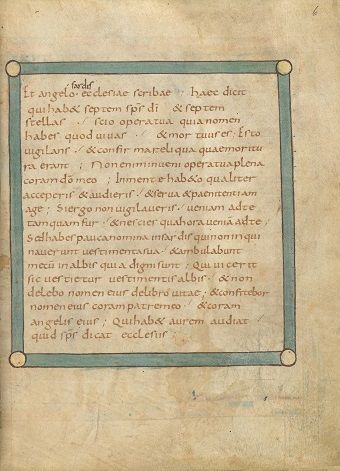 6
sardis
Et angelo ecclesiae scribae ; haec dicit
qui hab& septem sp̄s dī & septem
stellas scio opera tua quia nomen
habes quod vivas & mortuus es ; Esto
vigilans & confirma reliqua quae moritu
ra erant ; Non enim inveni opera tua plena
coram dō meo ; In mente hab&o qualiter
acceperis & audieris & serva & paenitentiam
age ; Si ergo non vigilaveris veniam ad te
tamquam fur & nescies qua hora veniā ad te ;
Sed habes pauca nomina in sardis qui non inqui
naverunt vestimenta sua & ambulabunt
mecū in albis quia digni sunt ; Qui vicerit
sic vestietur vestimentis albis & non
delebo nomen eius de libro vitae ; & confitebor
nomen eius coram patre meo & coram
angelis eius ; Qui hab& aurem audiat
quid sp̄s dicat ecclesiis ;